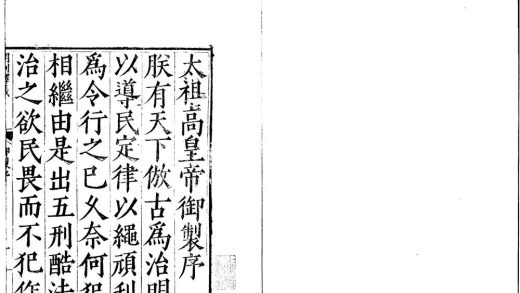 太祖高皇帝御製序
朕有天下倣古爲治明
以導民定律以繩頑刋
爲令行之已乆奈何犯
相繼由是出五刑酷法
治之欲民畏而不犯作